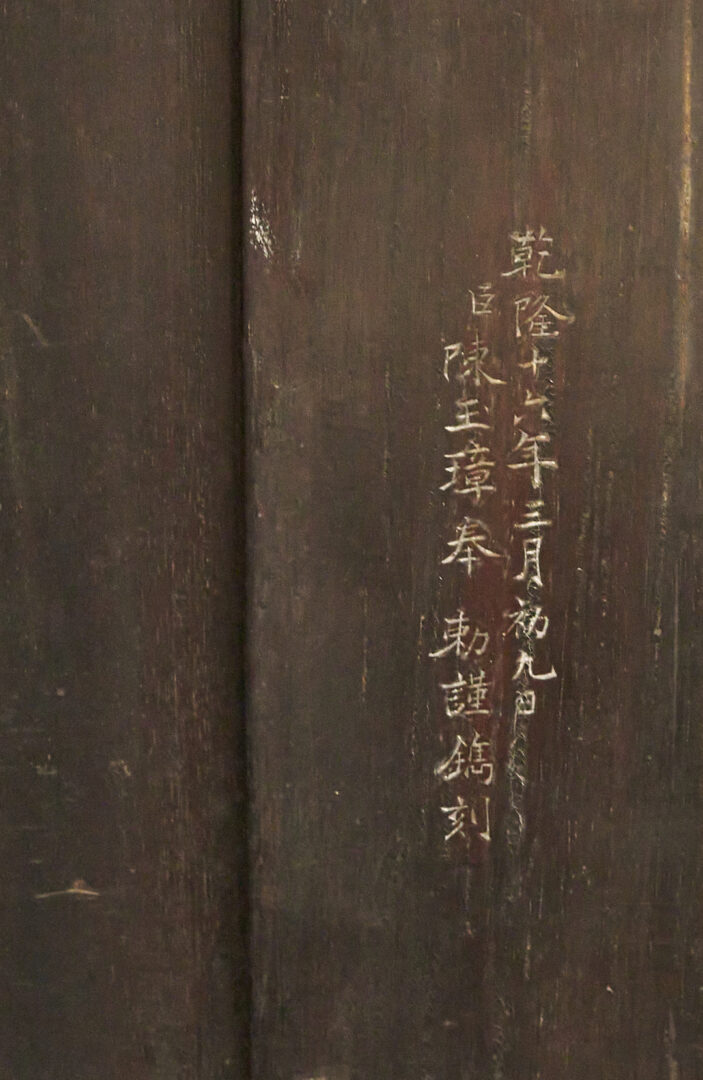 乾隆十六年三月初九日
臣陳玉璋奉 勅謹鐫刻